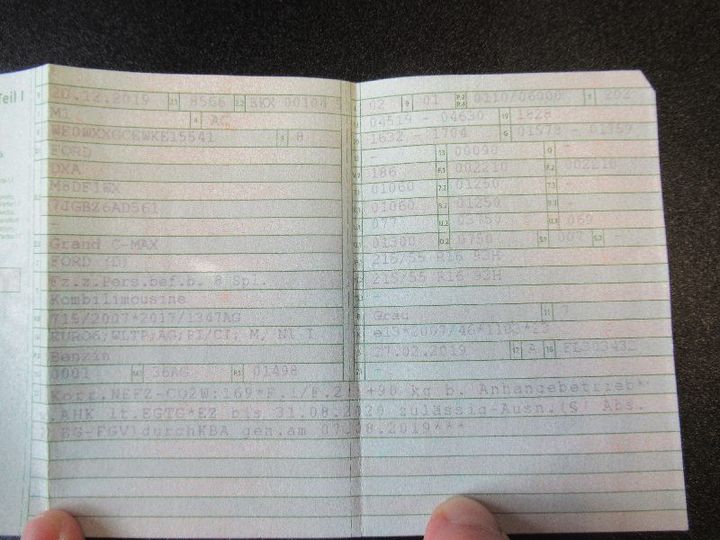 Teil I
20.12.2019 2.1 8566 2.2 BKX 00104
M1 4 AC
WF0WXXGCEWKE15541 3 8
FORD
DXA
M8DF1WX
7JGBZ6AD561
Grand C-MAX
FORD (D)
Fz.z.Pers.bef.b. 8 Spl.
Kombilimousine
715/2007*2017/1347AG
EURO6;WLTP;AG;PI/CI; M, N1 I
Benzin
0001 36AG 01498
02 9 01 P.2 P.4 0110/06000
04519 - 04630 19 1828
1632 - 1704 G 01578 - 01759
- 13 00090 Q -
186 F.1 002210 F.2 002210
01060 7.1 01250 7.2 -
01060 8.1 01250 8.2 -
077 U.2 03750 U.3 069
01300 O.2 0750 S.1 007 S.2 -
215/55 R16 93H
215/55 R16 93H
-
Grau 11 7
e13*2007/46*1103*
27.02.2019 17 A 16
Korr.NEFZ-CO2W:169*F.1/F.2: +90 kg b. Anhangebetrieb*
.AHK lt.EGTG*EZ bis 31.08.2020 zulässig-Ausn.(§ Abs.
EG-FGV)durchKBA gen.am 07.08.2019***